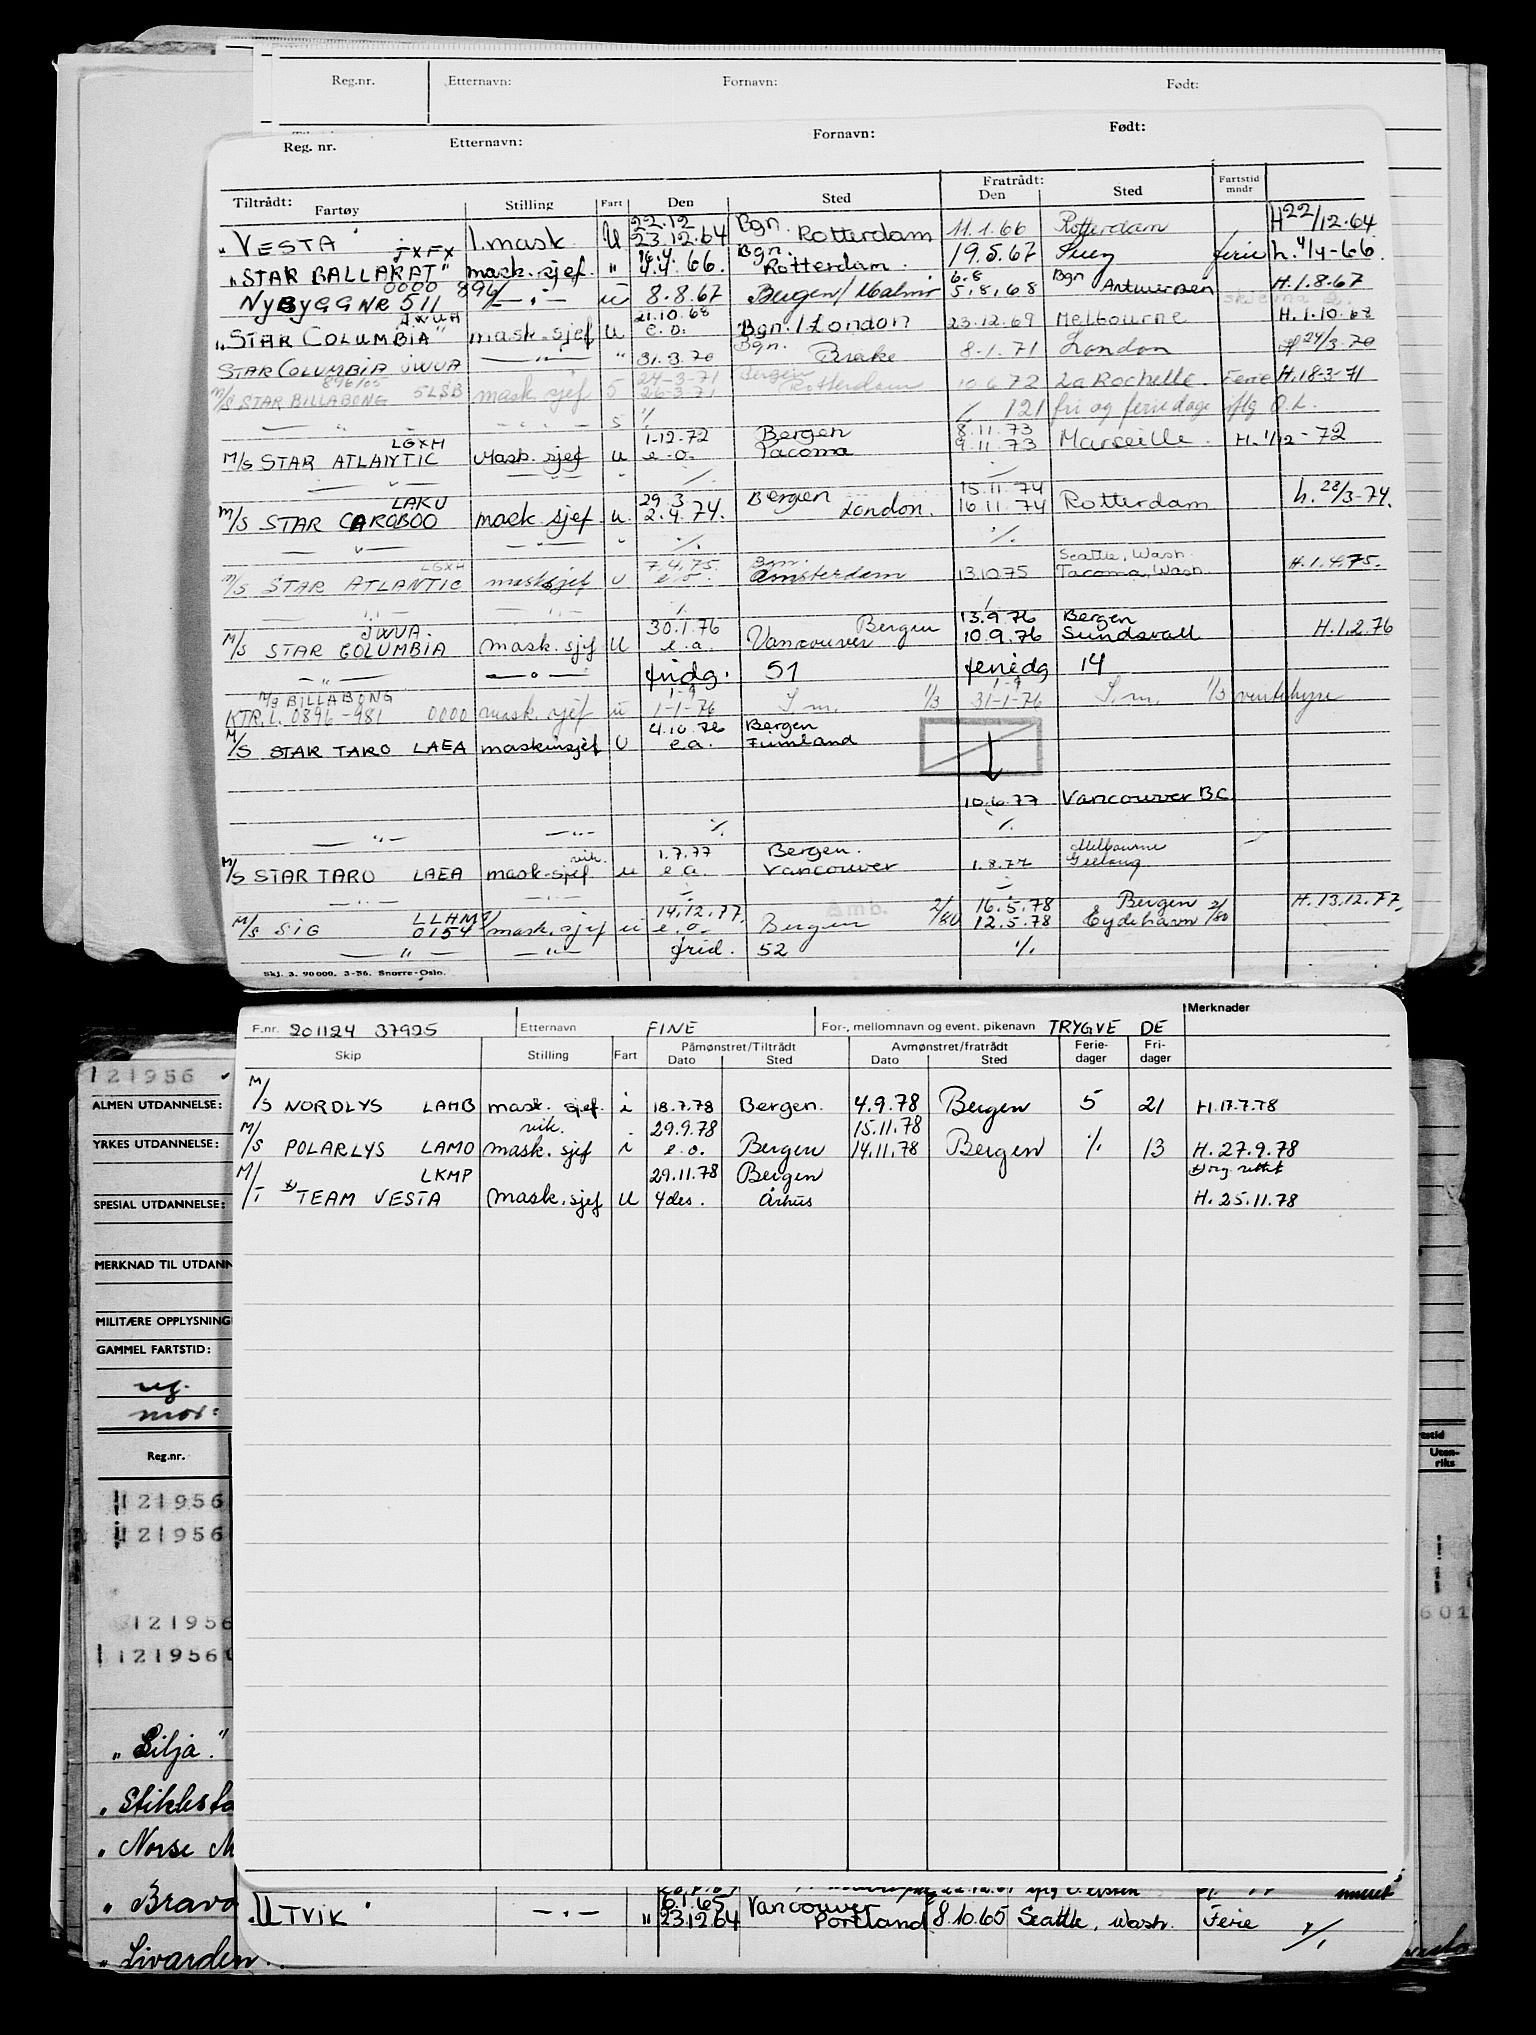 Reg.nr. Etternavn: Fornavn: Født:
Reg. nr. Etternavn: Fornavn: Født:
Tiltrådt: Fartøy Stilling Fart Den Sted Fratrådt: Den Sted Fartstid mndr
22.12 Bgn.
"VESTA" 1.mask U 23.12.64 Rotterdam 11.1.66 Rotterdam H 22/12.64
JXFX Bgn.
"STAR BALLARAT" mask. sjef. " 4.4.66. Rotterdam. 19.5.67 Suez ferie h. 4/4-66.
0000 896/ 6.8 Bgn
NYBYGG NR 511 — " — u 8.8.67 Bergen/Malmö 5.8.68 Antwerpen H.1.8.67
JWUA 21.10.68
"STAR COLUMBIA" mask.sjef U e.o. Bgn./London 23.12.69 Melbourne H.1.10.68
Bgn.
STAR COLUMBIA JWUA — " — " 31.3.70 Brake 8.1.71 London H 24/3-70
896/05 24-3-71 Bergen
M/S STAR BILLABONG 5LSB mask. sjef S 26-3-71 Rotterdam 10.6.72 La Rochelle. Ferie H.18-3-71
— " — — " — S ./. ./. 121 fri og feriedage iflg O.L.
LGXH 1-12-72 Bergen 8.11.73
M/S STAR ATLANTIC Mask. sjef u e.o. Tacoma 9.11.73 Marseille. H. 1/12-72
— " — — " — ./. ./.
LAKU 29.3 Bergen 15.11.74
M/S STAR CARIBOO mask sjef. u 2.4.74. London. 16.11.74 Rotterdam h. 28/3-74.
— " — — " — " ./. ./.
LGXH 7.4.75. Bgn. Seattle, Wash.
M/S STAR ATLANTIC mask sjef u e.o. Amsterdam 13.10.75 Tacoma, Wash. H.1.4.75.
— " — — " — ./. ./.
JWUA. 30.1.76 Bergen 13.9.76 Bergen
M/S STAR COLUMBIA mask. sjef U e.a. Vancouver 10.9.76 Sundsvall H.1.2.76
— " — — " — fridg. 51 feriedg 14
M/S BILLABONG 1-9 1-9
KTR.L. 0896-981 0000 mask. sjef u 1-1-76 S.m. 1/3 31-1-76 S.m. 1/3 ventehyre
4.10.76 Bergen
M/S STAR TARO LAEA maskinsjef U e.a. Finnland
10.6.77 Vancouver BC
— " — — " — ./. ./.
vik. 1.7.77 Bergen. Melbourne
M/S STAR TARO LAEA mask-sjef u e.a. Vancouver 1.8.77 Geelong
— " — — " — ./. ./.
LLHM 14.12.77. 2/80 16.5.78 Bergen 2/80 H.13.12.77.
M/S SIG 0154 mask. sjef u e.o. Bergen 12.5.78 Eydehavn
— " — — " — frid. 52 ./.
Skj. 3. 90000. 3-56. Snorre-Oslo.
F.nr. 201124 37925 Etternavn FINE For-, mellomnavn og event. pikenavn TRYGVE DE Merknader
Skip Stilling Fart Påmønstret/Tiltrådt Dato Sted Avmønstret/fratrådt Dato Sted Ferie-dager Fri-dager
M/S NORDLYS LAMB mask. sjef. i 18.7.78 Bergen. 4.9.78 Bergen 5 21 H.17.7.78
vik. 29.9.78 15.11.78
M/S POLARLYS LAMO mask. sjef i e.o. Bergen 14.11.78 Bergen ./. 13 H.27.9.78
LKMP 29.11.78 Bergen
M/T TEAM VESTA Mask.sjef U 4 des. Århus H.25.11.78
121956
ALMEN UTDANNELSE:
YRKES UTDANNELSE:
SPESIAL UTDANNELSE:
MERKNAD TIL UTDANN
MILITÆRE OPPLYSNING
GAMMEL FARTSTID:
Reg.nr.
Utenriks
121956
121956
121956
121956
601
"Silja."
Norse
6.1.65 Vancouver
"UTVIK" — " — " 23.12.64 Portland 8.10.65 Seattle, Wash. Ferie ./.
"Livarden